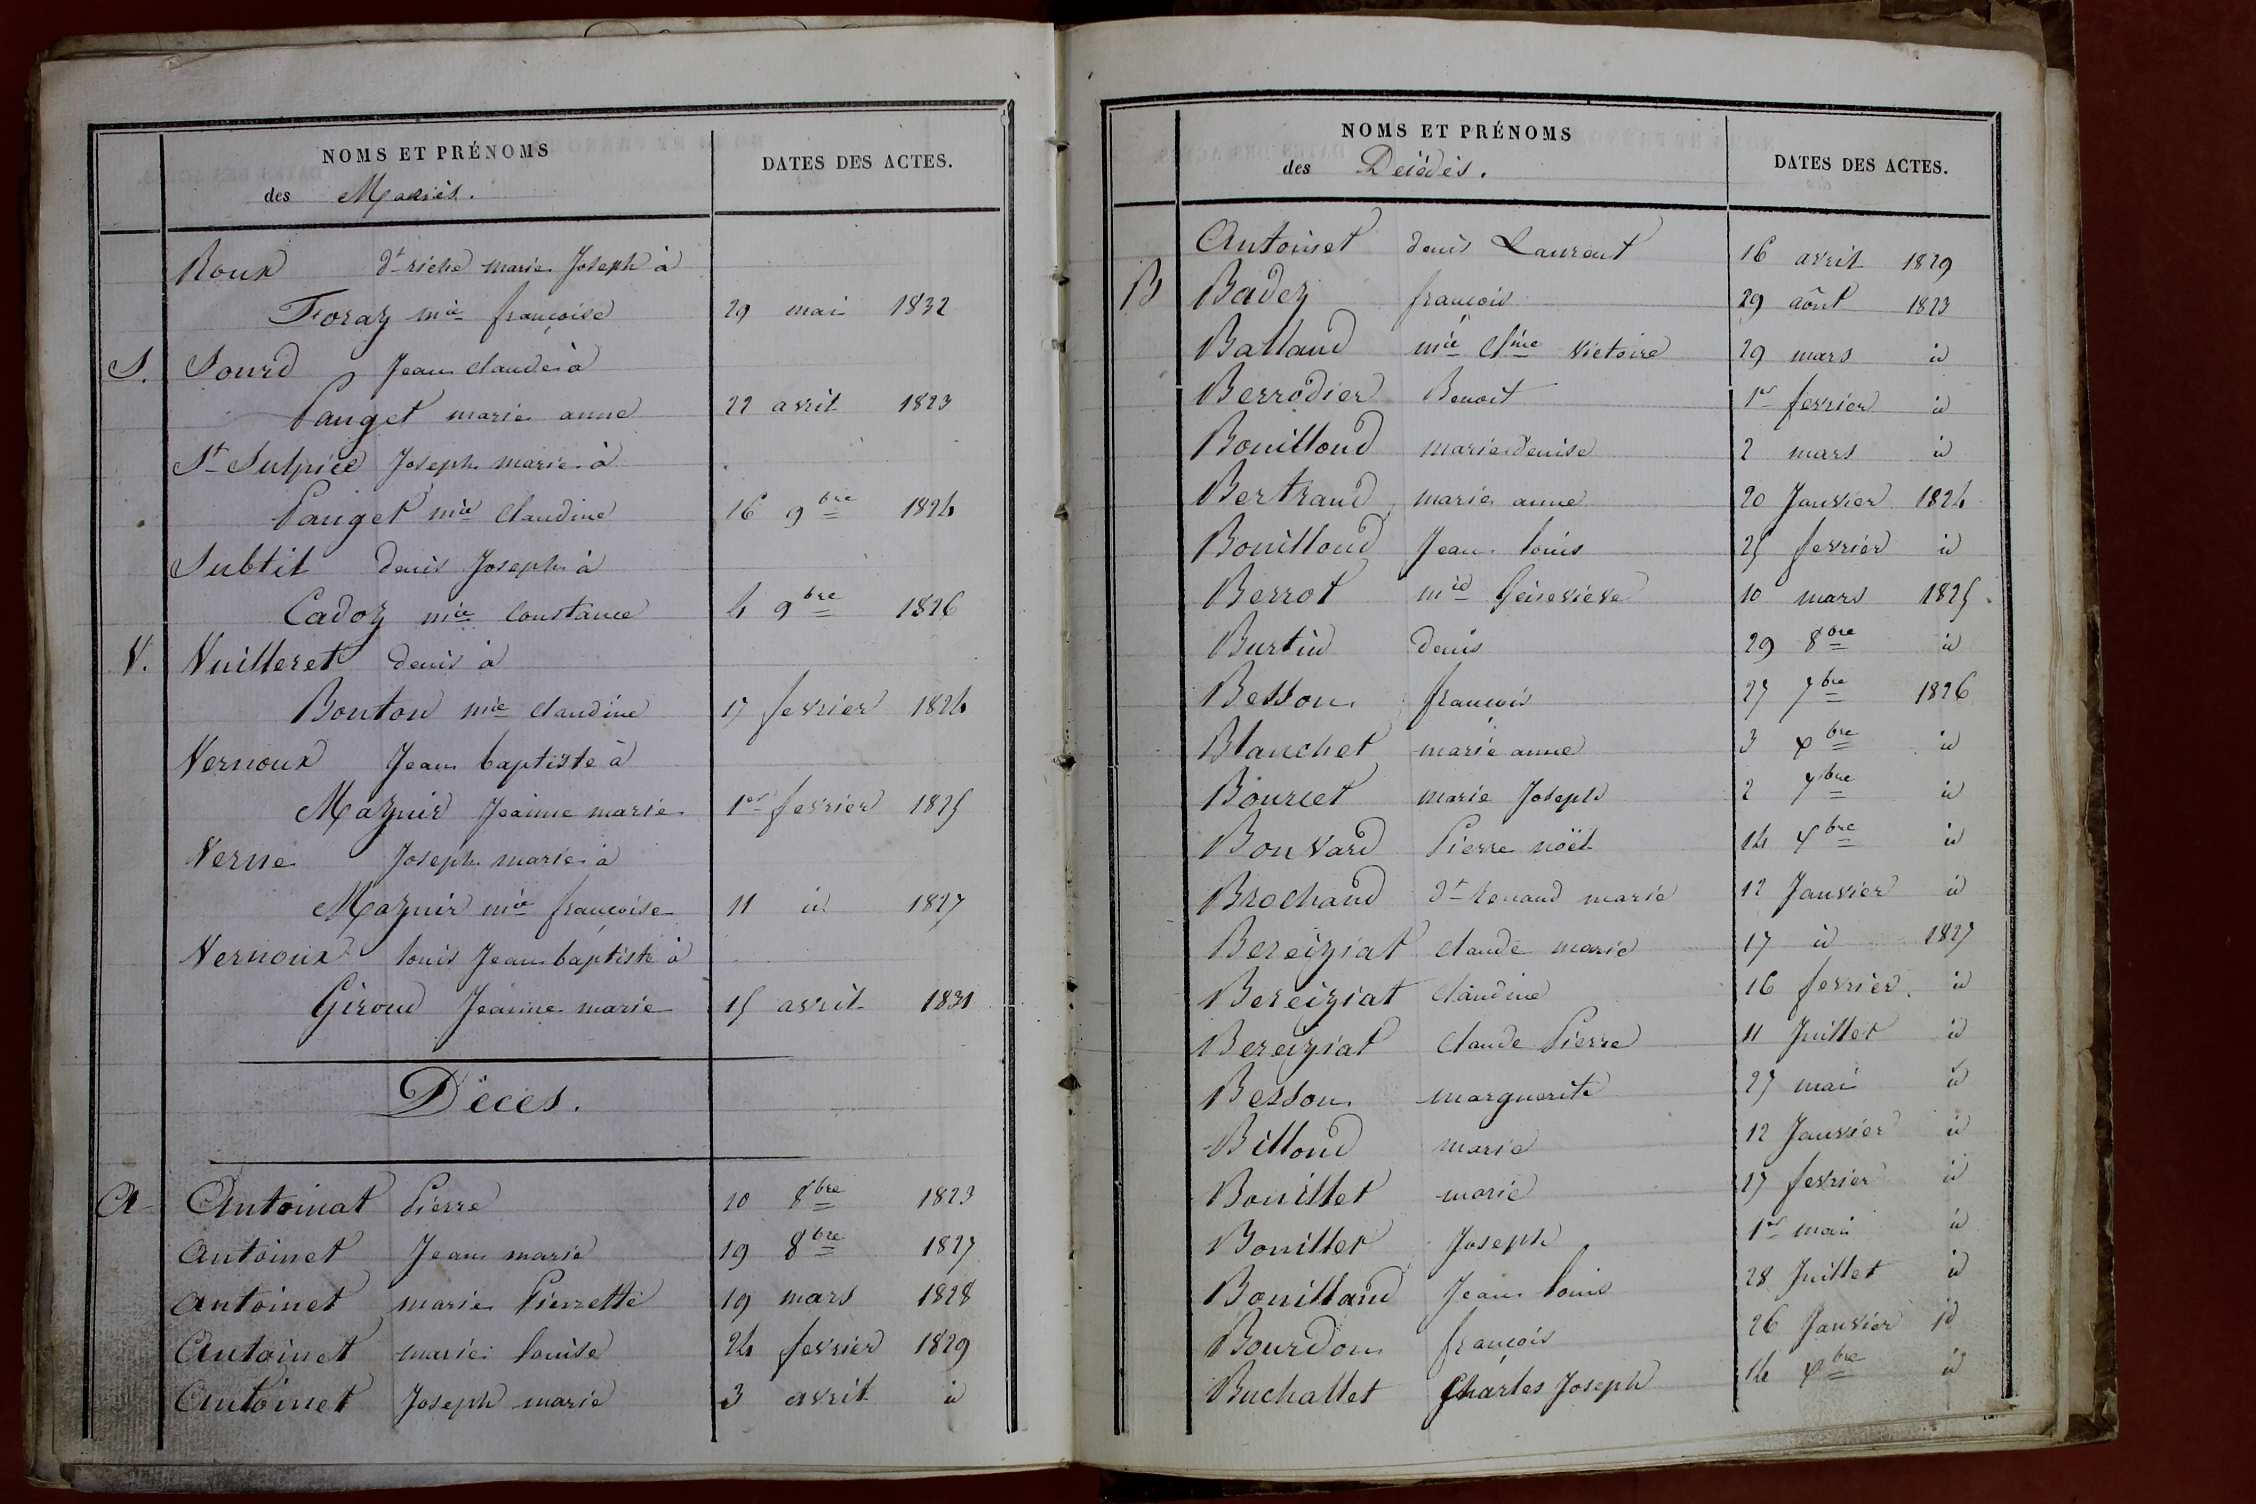 NOMS ET PRÉNOMS
des Mariés.
DATES DES ACTES.
Roux dt riche marie Joseph à
Foraz mie françoise 29 mai 1832
S. Sourd Jean claude à
Panget marie anne 22 avril 1823
St Sulpice Joseph marie à
Panget mie claudine 16 9bre 1824
Subtil denis Joseph à
Cadoz mie constance 4 9bre 1826
V. Vuilleret denis à
Bonton mie claudine 17 fevrier 1824
Vernoux Jean baptiste à
Mazuir Jeanne marie 1er fevrier 1825
Verne Joseph marie à
Mazuir mie françoise 11 id 1827
Vernoux louis Jean baptiste à
Giroud Jeanne marie 15 avril 1831
Décès.
A Antoinat Pierre 10 8bre 1823
Antoinet Jean marie 19 8bre 1827
Antoinet marie Pierrette 19 mars 1828
Antoinet marie louise 24 fevrier 1829
Antoinet Joseph marie 3 avril id
NOMS ET PRÉNOMS
des Décédés.
DATES DES ACTES.
Antoinet denis Laurent 16 avril 1829
B Badez françois 29 août 1823
Balland mie victoire 29 mars id
Berrodier Benoit 1er fevrier id
Bouilloud marie denise 2 mars id
Bertrand marie anne 20 Janvier 1824
Bouilloud Jean louis 25 fevrier id
Berrot mie Géneviève 10 mars 1825
Burtin denis 29 8bre id
Besson françois 27 7bre 1826
Blanchet marie anne 3 bre id
Bourcet marie Joseph 2 7bre id
Bonvard Pierre noël 14 bre id
Brochand dt Renaud marie 12 Janvier id
Bereiziat claude marie 17 id 1827
Bereiziat claudine 16 fevrier id
Bereiziat claude Pierre 11 Juillet id
Besson marguerite 27 mai id
Billoud marie 12 Janvier id
Bouillet marie 17 fevrier id
Bouillet Joseph 1er mai id
Bouilland Jean louis 28 Juillet id
Bourdon françois 26 Janvier id
Buchallet Charles Joseph 14 bre id